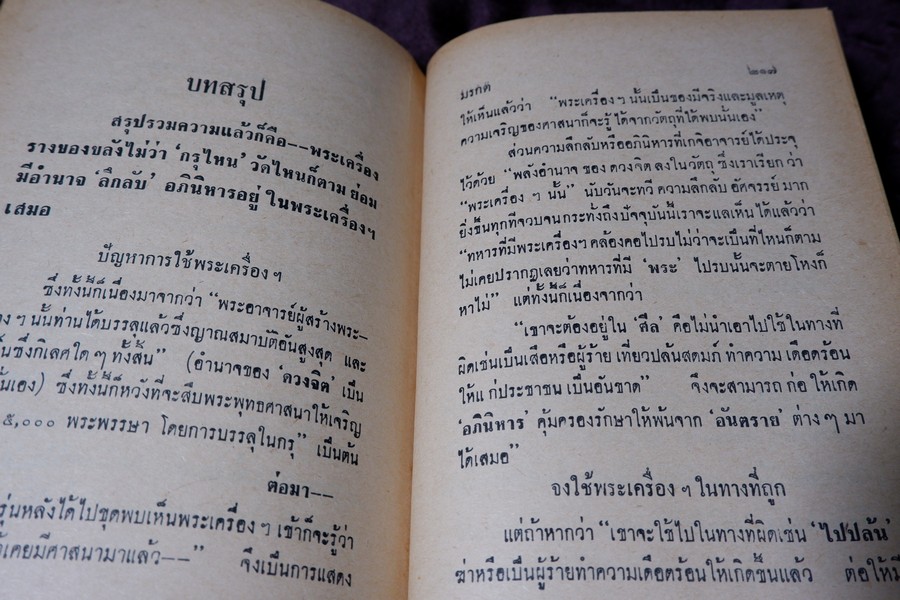 บทสรุป
สรุปรวมความแล้วก็คือ--พระเครื่อง
รางของขลังไม่ว่า ‘กรุไหน’ วัดไหนก็ตาม ย่อม
มีอำนาจ ‘ลึกลับ’ อภินิหารอยู่ ในพระเครื่องฯ
เสมอ
ปัญหาการใช้พระเครื่อง ฯ
ซึ่งทั้งนี้ก็เนื่องมาจากว่า “พระอาจารย์ผู้สร้างพระ–
อง ฯ นั้นท่านได้บรรลุแล้วซึ่งญาณสมาบัติอันสูงสุด และ
นซึ่งกิเลศใด ๆ ทั้งสิ้น” (อำนาจของ ‘ดวงจิต’ เป็น
นั้นเอง) ซึ่งทั้งนี้ก็หวังที่จะสืบพระพุทธศาสนาให้เจริญ
๕,๐๐๐ พระพรรษา โดยการบรรลุในกรุ” เป็นต้น
ต่อมา--
รุ่นหลังได้ไปขุดพบเห็นพระเครื่อง ฯ เข้าก็จะรู้ว่า
เคยมีศาสนามาแล้ว--” จึงเป็นการแสดง
มรกต
๒๑๗
ให้เห็นแล้วว่า “พระเครื่อง ฯ นั้นเป็นของมีจริงและมูลเหตุ
ความเจริญของศาสนาก็จะรู้ ได้จากวัตถุที่ได้พบนั้นเอง”
ส่วนความลึกลับหรืออภินิหารที่เกจิอาจารย์ได้ประจุ
ไว้ด้วย “พลังอำนาจ ของ ดวงจิต ลงในวัตถุ ซึ่งเราเรียก ว่า
“พระเครื่อง ฯ นั้น” นับวันจะทวี ความลึกลับ อัศจรรย์ มาก
ยิ่งขึ้นทุกทีจวบจน กระทั่งถึงปัจจุบันนี้เราจะแลเห็น ได้แล้วว่า
“ทหารที่มีพระเครื่องฯ คล้องคอไปรบไม่ว่าจะเป็นที่ไหนก็ตาม
ไม่เคยปรากฏเลยว่าทหารที่มี ‘พระ’ ไปรบนั้นจะตายโหงก็
หาไม่” แต่ทั้งนี้ก็เนื่องจากว่า
“เขาจะต้องอยู่ใน ‘ศีล’ คือไม่นำเอาไปใช้ในทางที่
ผิดเช่นเป็นเสือหรือผู้ร้าย เที่ยวปล้นสดมภ์ ทำความ เดือดร้อน
ให้แ ก่ประชาชน เป็นอันขาด” จึงจะสามารถ ก่อ ให้เกิด
‘อภินิหาร’ คุ้มครองรักษาให้พ้นจาก ‘อันตราย’ ต่าง ๆ มา
ได้เสมอ”
จงใช้พระเครื่อง ฯ ในทางที่ถูก
แต่ถ้าหากว่า “เขาจะใช้ไปในทางที่ผิดเช่น ‘ไปปล้น’
ฆ่าหรือเป็นผู้ร้ายทำความเดือดร้อนให้เกิดขึ้นแล้ว ต่อให้มี